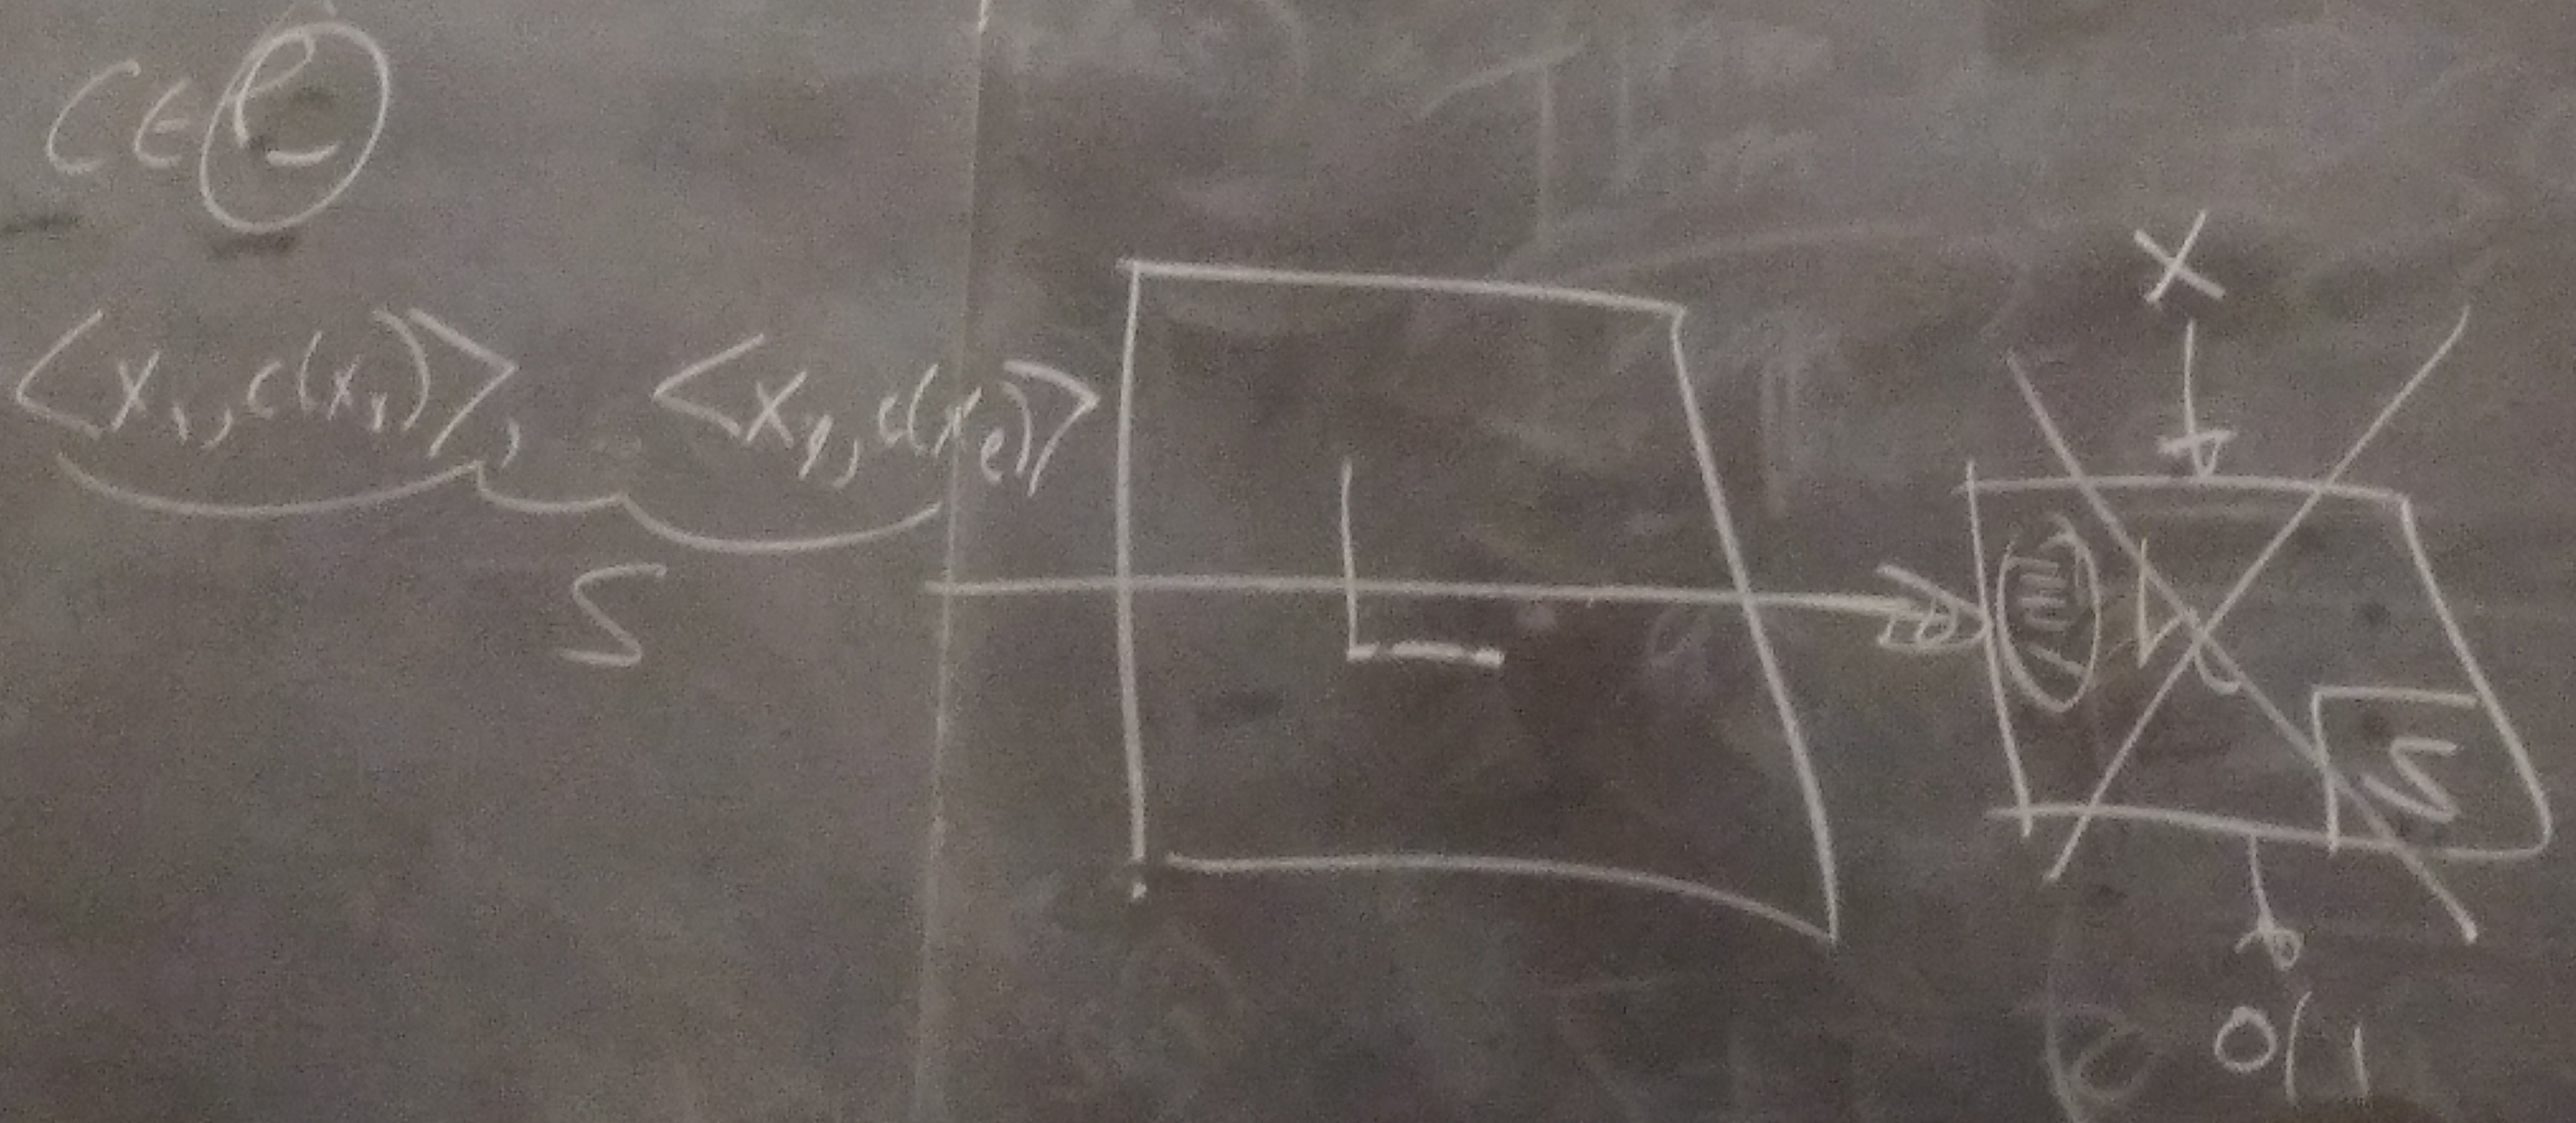 C ∈
⟨x₁, c(x₁)⟩, ⟨xₗ, c(xₗ)⟩
S
L
x
h
S
0/1